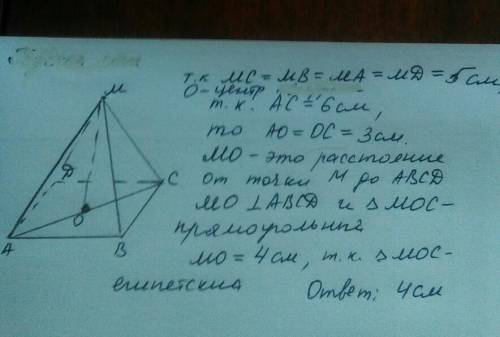 т.к MC = MB = MA = MD = 5 см,
О-центр
т.к. AC = 6 см,
то AO = OC = 3 см.
MO - это расстоение
от точки M до ABCD
MO ⊥ ABCD и △ MOC -
прямоугольный
MO = 4 см, т.к. △ MOC -
египетский
Ответ: 4 см
M
D
C
O
A
B